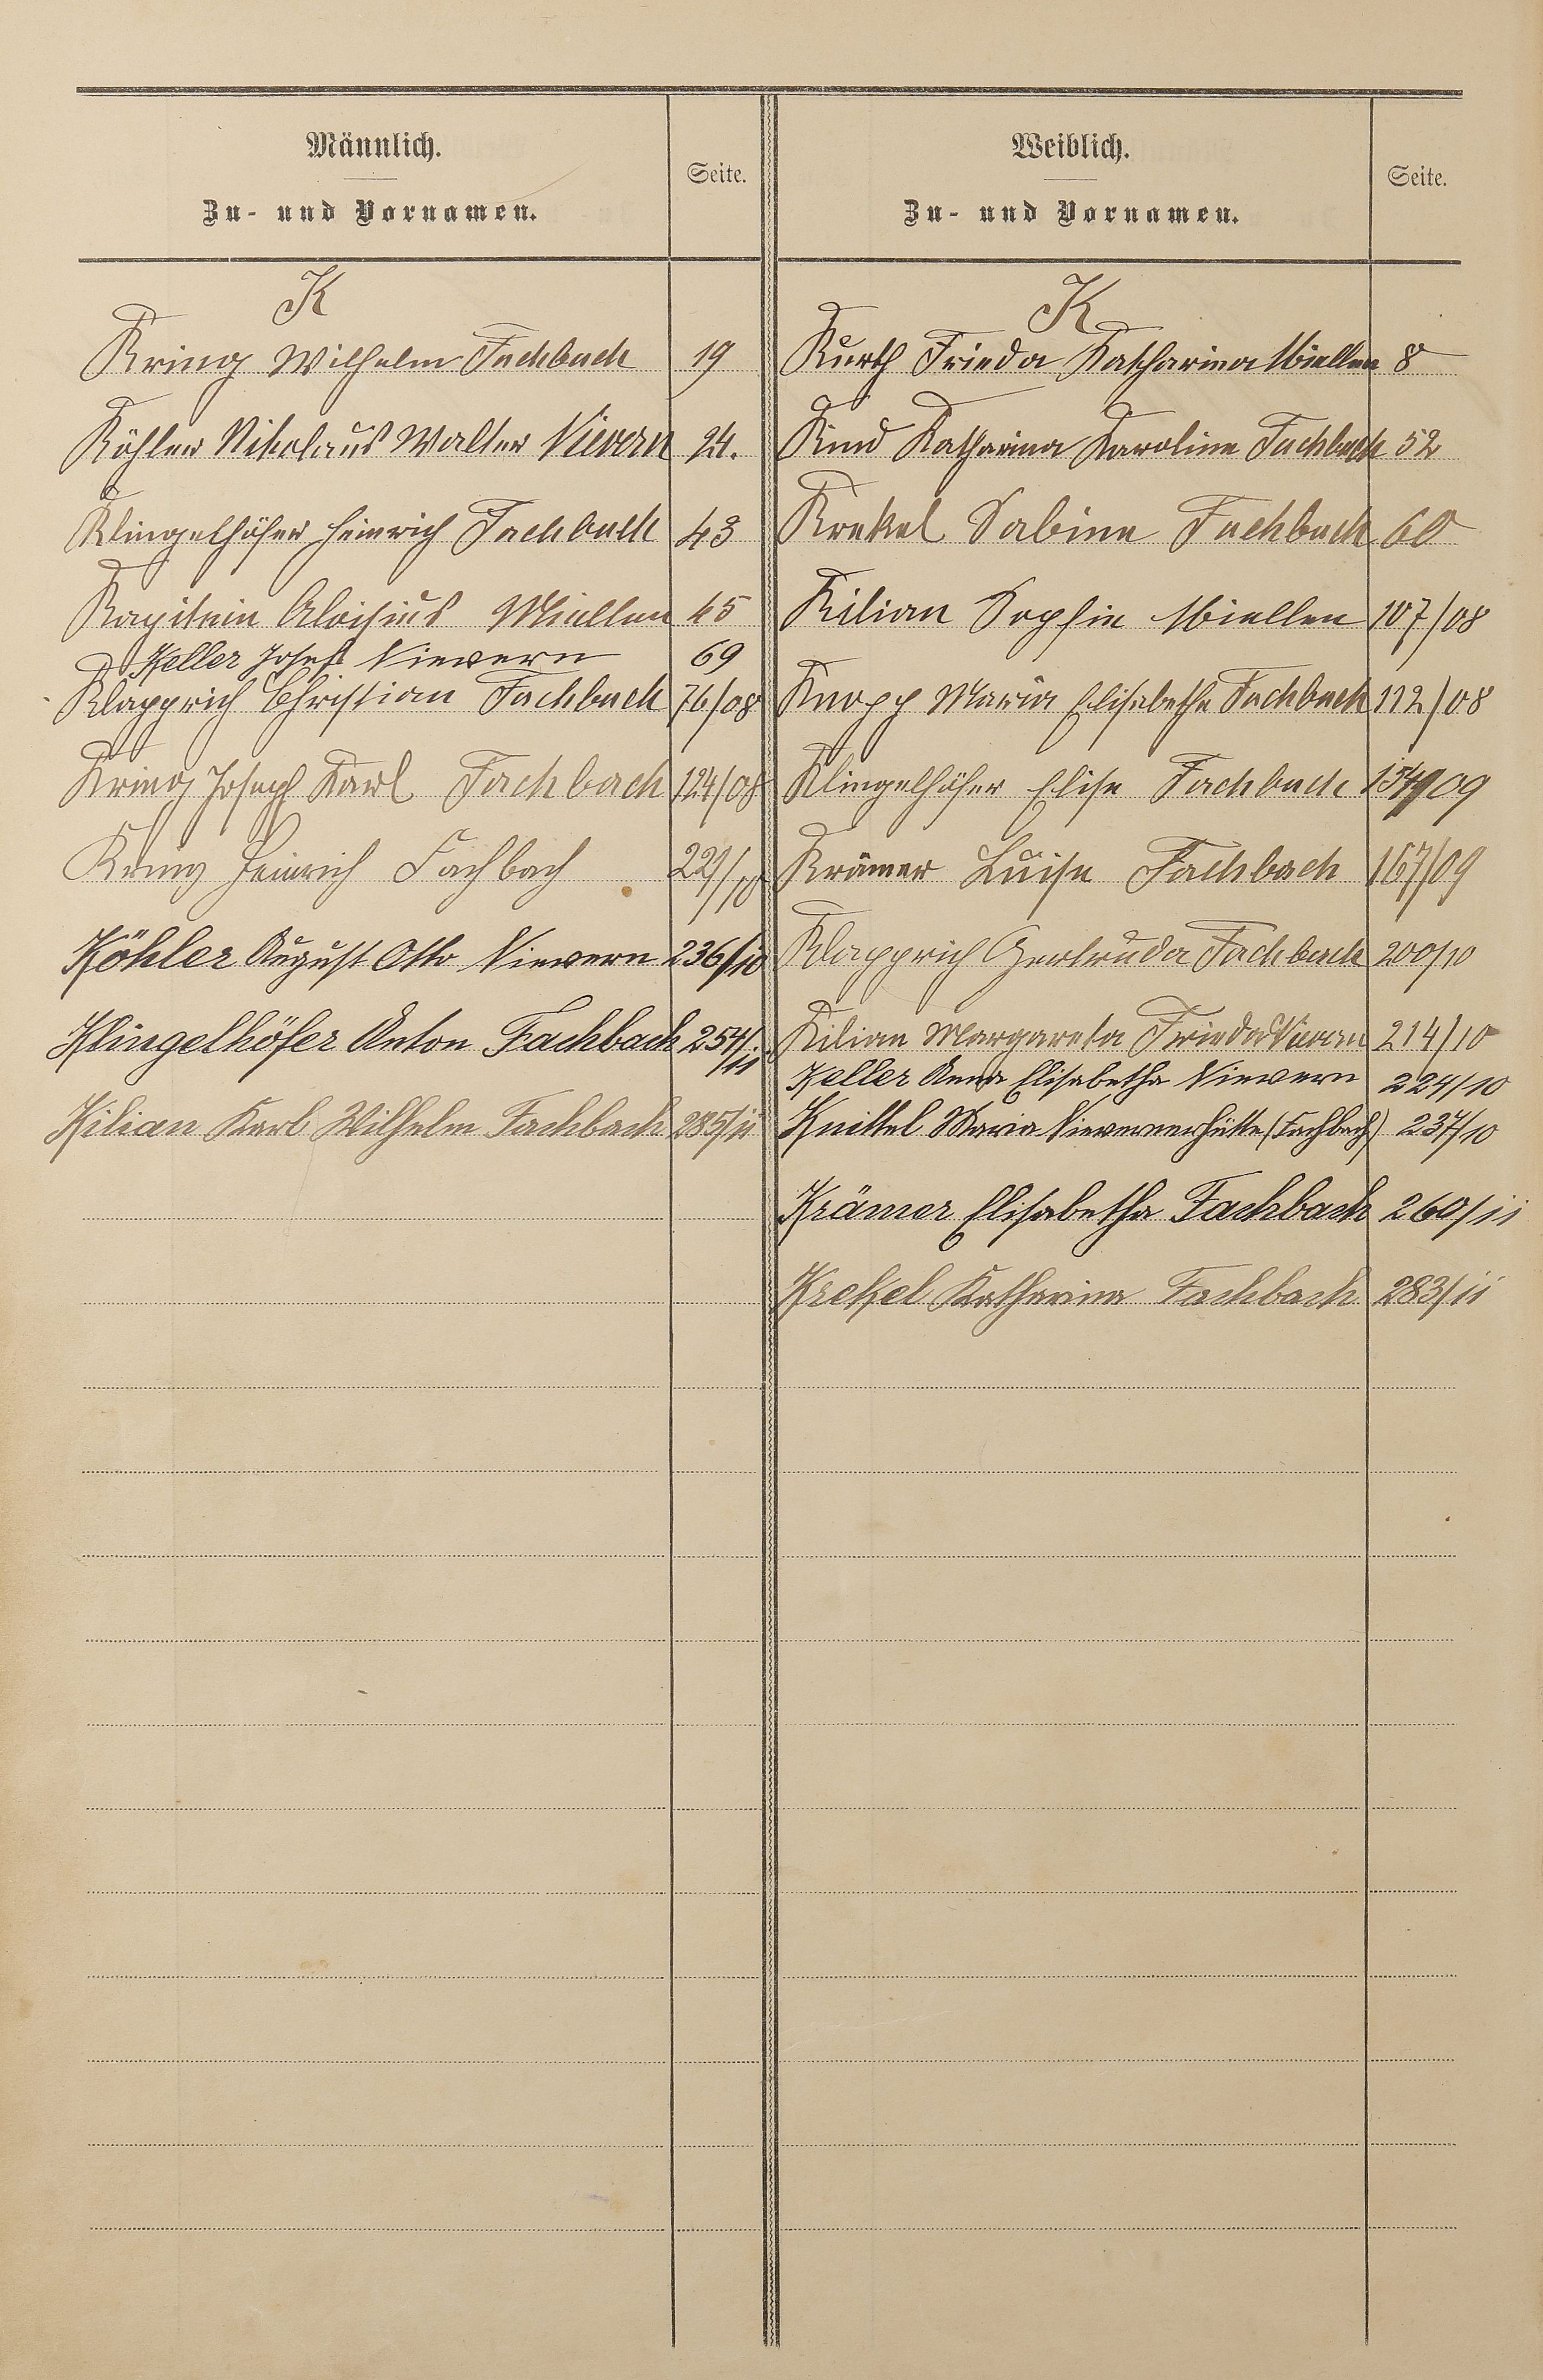 Männlich.
Zu- und Vornamen.
Seite.
K
Kring Wilhelm Fachbach 19
Köhler Nikolaus Walter Nievern 24.
Klingelhöfer Heinrich Fachbach 43
Kapitain Aloisius Miellen 45
Keller Josef Nievern 69
Klapprich Christian Fachbach 76/08
Kring Joseph Karl Fachbach 124/08
Kring Heinrich Fachbach 221/10
Köhler August Otto Nievern 236/10
Klingelhöfer Anton Fachbach 254/11
Kilian Karl Wilhelm Fachbach 285/11
Weiblich.
Zu- und Vornamen.
Seite.
K
Kurth Frieda Katharina Miellen 8
Kind Katharina Karoline Fachbach 52
Krekel Sabine Fachbach 60
Kilian Sophie Miellen 107/08
Knopp Maria Elisabetha Fachbach 112/08
Klingelhöfer Elise Fachbach 154/09
Krämer Luise Fachbach 167/09
Klapprich Gertruda Fachbach 200/10
Kilian Margareta Frieda Nievern 214/10
Keller Anna Elisabetha Nievern 224/10
Knittel Maria Nievernerhütte (Fachbach) 237/10
Krämer Elisabetha Fachbach 260/11
Krekel Katharina Fachbach 283/11